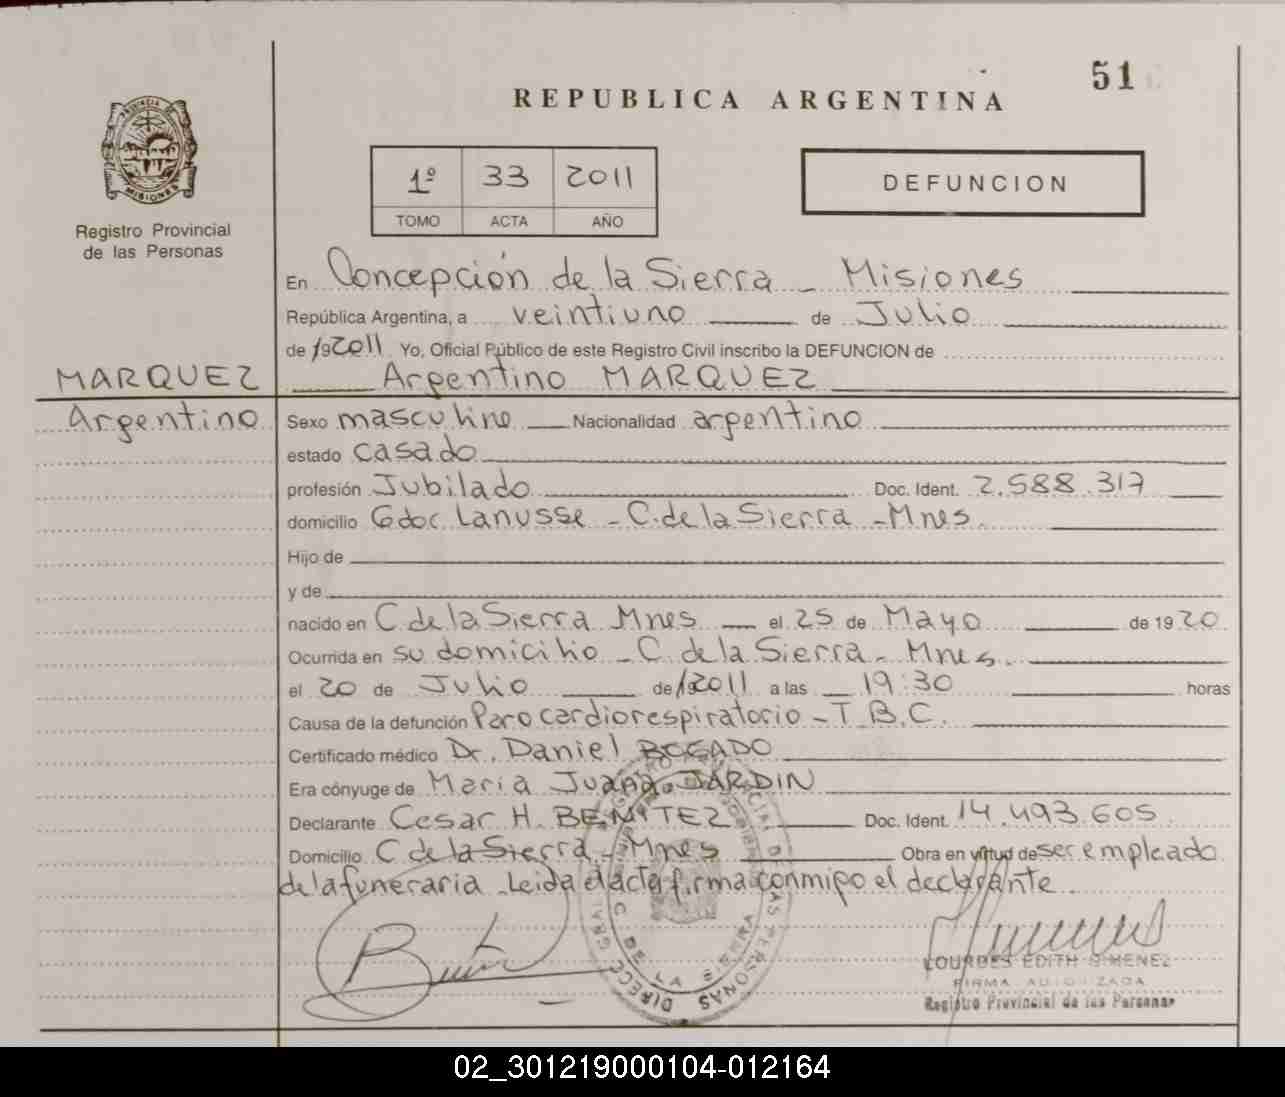 51
REPUBLICA ARGENTINA
PROVINCIA DE
MISIONES
Registro Provincial
de las Personas
1º 33 2011
TOMO ACTA AÑO
DEFUNCION
En Concepción de la Sierra - Misiones
República Argentina, a veintiuno de Julio
de 192011 Yo, Oficial Público de este Registro Civil inscribo la DEFUNCION de
MARQUEZ Argentino MARQUEZ
Argentino Sexo masculino Nacionalidad argentino
estado casado
profesión Jubilado Doc. Ident. 2.588.317
domicilio Gdor Lanusse - C. de la Sierra - Mnes.
Hijo de
y de
nacido en C. de la Sierra Mnes el 25 de Mayo de 1920
Ocurrida en su domicilio - C. de la Sierra - Mnes.
el 20 de Julio de 192011 a las 19:30 horas
Causa de la defunción Paro cardiorespiratorio - T.B.C.
Certificado médico Dr. Daniel BOGADO
Era cónyuge de Maria Juana JARDIN
Declarante Cesar H. BENITEZ Doc. Ident. 14.493.605
Domicilio C de la Sierra - Mnes Obra en virtud de ser empleado
de la funeraria - Leida el acta firma conmigo el declarante
LOURDES EDITH GIMENEZ
FIRMA AUTORIZADA
Registro Provincial de las Personas
C. DE LA SIERRA
02_301219000104-012164